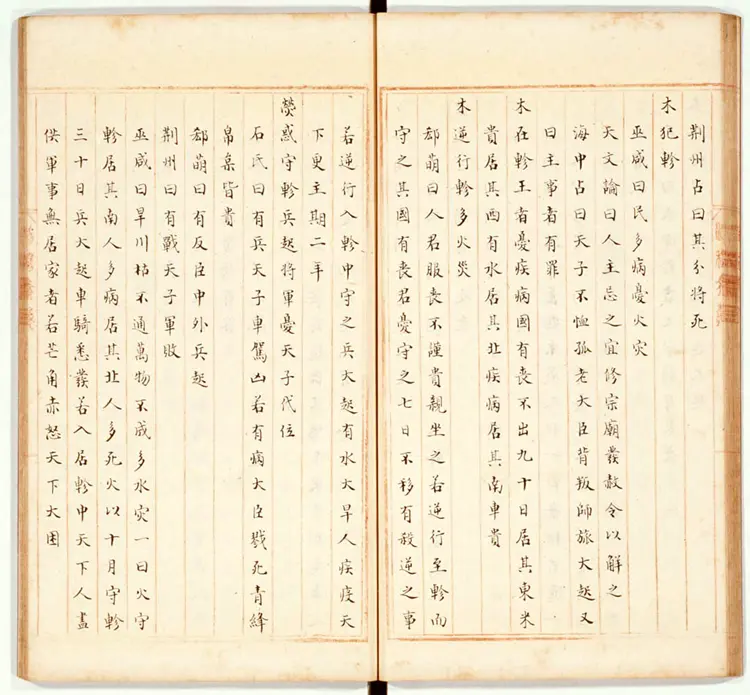 荆州占曰其分将死
木犯軫
巫咸曰民多病憂火灾
天文論曰人主忌之宜修宗廟發赦令以解之
海中占曰天子不恤孤老大臣背叛師旅大起又
曰主事者有罪
木在軫王者憂疾病國有喪不出九十日居其東米
貴居其西有水居其北疾病居其南車貴
木逆行軫多火災
郄萌曰人君服喪不謹貴親坐之若逆行至軫而
守之其國有喪君憂守之七日不移有殺逆之事
若逆行入軫中守之兵大起有水大旱人疾疫天
下更主期二年
熒惑守軫兵起将軍憂天子代位
石氏曰有兵天子車駕凶若有病大臣戮死青絳
帛棗皆貴
郄萌曰有反臣中外兵起
荆州曰有戰天子軍敗
巫咸曰旱川枯不通萬物不成多水灾一曰火守
軫居其南人多病居其北人多死火以十月守軫
三十日兵大起車騎悉發若入居軫中天下人盡
供軍事無居家者若芒角赤怒天下大困